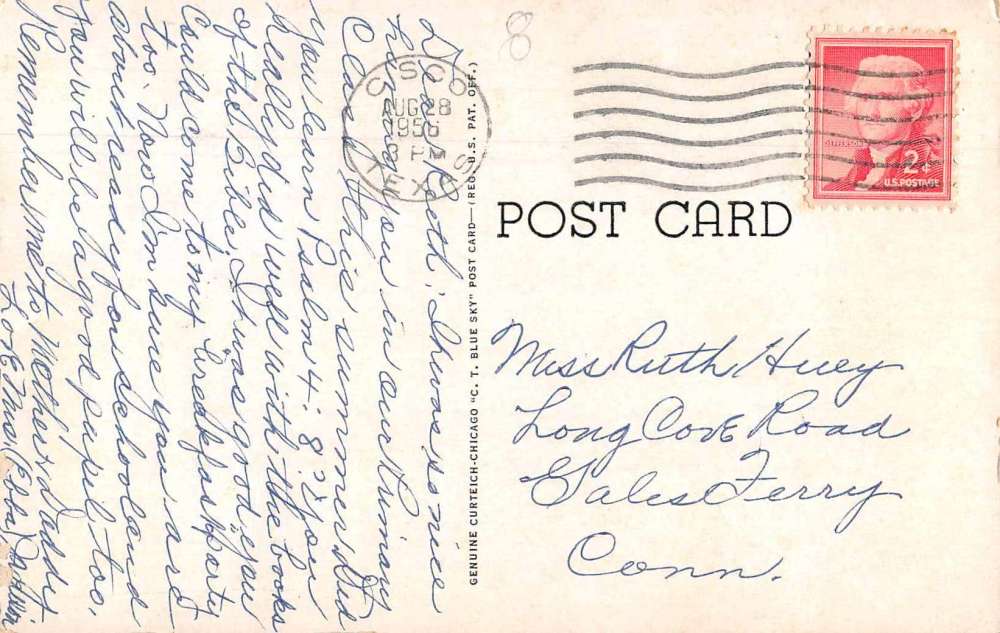 Dear Ruth; It was so nice
having you in our Primary
Class this summer. Did
you learn Psalm 4:8? You
really did well with the books
of the Bible. It was good you
could come to my breakfast party
too. Now I'm sure you are
about ready for school and
you will be a good pupil too.
Remember me to Mother & Daddy
Love Mrs. (Elba)
8
OSCO
AUG 28
1956
3 PM
TEXAS
JEFFERSON
2¢
U.S. POSTAGE
POST CARD
GENUINE CURTEICH-CHICAGO "C. T. BLUE SKY" POST CARD—(REG. U.S. PAT. OFF.)
Miss Ruth Huey
Long Cove Road
Gales Ferry
Conn.